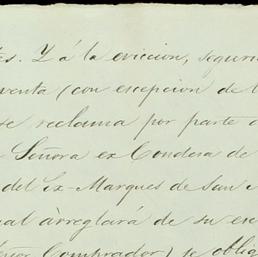 es. Y á la eviccion, seguri
venta (con escepcion de l
se reclama por parte d
Señora ex Condesa de
del Ex-Marques de San
ual àrreglará de su
Comprador) se oblig